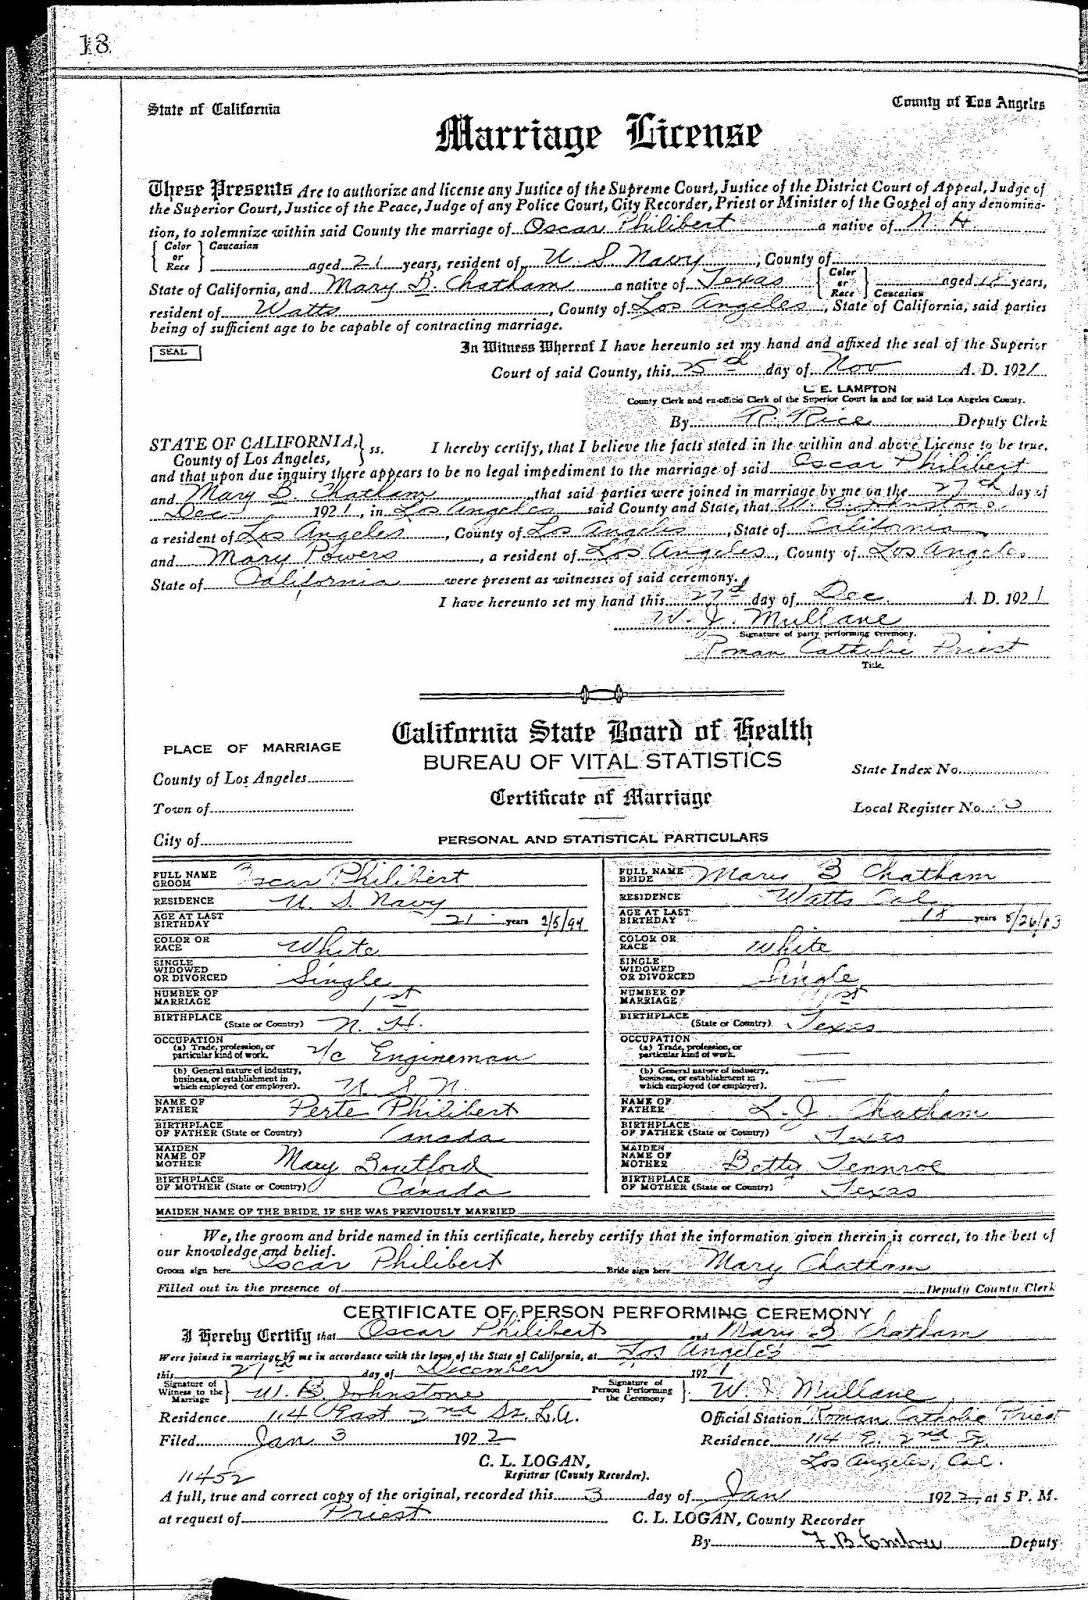 13
State of California County of Los Angeles
Marriage License
These Presents Are to authorize and license any Justice of the Supreme Court, Justice of the District Court of Appeal, Judge of
the Superior Court, Justice of the Peace, Judge of any Police Court, City Recorder, Priest or Minister of the Gospel of any denomina-
tion, to solemnize within said County the marriage of Oscar Philibert a native of N. H.
Color or Race Caucasian aged 21 years, resident of U S Navy, County of
State of California, and Mary B. Chatham a native of Texas Color or Race Caucasian aged 18 years,
resident of Watts, County of Los Angeles, State of California, said parties
being of sufficient age to be capable of contracting marriage.
SEAL
In Witness Whereof I have hereunto set my hand and affixed the seal of the Superior
Court of said County, this 25th day of Nov A. D. 1921
L. E. LAMPTON
County Clerk and ex-officio Clerk of the Superior Court in and for said Los Angeles County.
By R. Rice Deputy Clerk
STATE OF CALIFORNIA, County of Los Angeles, } ss. I hereby certify, that I believe the facts stated in the within and above License to be true,
and that upon due inquiry there appears to be no legal impediment to the marriage of said Oscar Philibert
and Mary B. Chatham, that said parties were joined in marriage by me on the 27th day of
Dec 1921, in Los Angeles said County and State, that W. B.
a resident of Los Angeles, County of Los Angeles, State of California
and Mary Powers, a resident of Los Angeles, County of Los Angeles
State of California were present as witnesses of said ceremony.
I have hereunto set my hand this 27th day of Dec A. D. 1921
W. J. Mullane
Signature of party performing ceremony.
Roman Catholic Priest
Title.
California State Board of Health
PLACE OF MARRIAGE
BUREAU OF VITAL STATISTICS
County of Los Angeles State Index No.
Certificate of Marriage
Town of Local Register No.
City of
PERSONAL AND STATISTICAL PARTICULARS
FULL NAME GROOM Oscar Philibert
RESIDENCE U. S. Navy
AGE AT LAST BIRTHDAY 21 years
COLOR OR RACE White
SINGLE WIDOWED OR DIVORCED Single
NUMBER OF MARRIAGE 1st
BIRTHPLACE (State or Country) N. H.
OCCUPATION (a) Trade, profession, or particular kind of work. 2/c Engineman
(b) General nature of industry, business, or establishment in which employed (or employer). U. S. N.
NAME OF FATHER Perte Philibert
BIRTHPLACE OF FATHER (State or Country) Canada
MAIDEN NAME OF MOTHER Mary
BIRTHPLACE OF MOTHER (State or Country) Canada
FULL NAME BRIDE Mary B Chatham
RESIDENCE Watts Cal
AGE AT LAST BIRTHDAY 18 years 8/26/03
COLOR OR RACE White
SINGLE WIDOWED OR DIVORCED Single
NUMBER OF MARRIAGE 1st
BIRTHPLACE (State or Country) Texas
OCCUPATION (a) Trade, profession, or particular kind of work.
(b) General nature of industry, business, or establishment in which employed (or employer).
NAME OF FATHER L. J. Chatham
BIRTHPLACE OF FATHER (State or Country) Texas
MAIDEN NAME OF MOTHER Betty
BIRTHPLACE OF MOTHER (State or Country) Texas
MAIDEN NAME OF THE BRIDE, IF SHE WAS PREVIOUSLY MARRIED
We, the groom and bride named in this certificate, hereby certify that the information given therein is correct, to the best of
our knowledge and belief.
Groom sign here Oscar Philibert Bride sign here Mary Chatham
Filled out in the presence of Deputy County Clerk
CERTIFICATE OF PERSON PERFORMING CEREMONY
I Hereby Certify that Oscar Philibert and Mary B Chatham
Were joined in marriage by me in accordance with the laws of the State of California, at Los Angeles
this day of December 1921
Signature of Witness to the Marriage } W. B. Johnstone Signature of Person Performing the Ceremony } W. J. Mullane
Residence 114 East 2nd St. L.A. Official Station Roman Catholic Priest
Filed Jan 3 1922 Residence 114 E. 2nd St.
C. L. LOGAN, Los Angeles, Cal.
Registrar (County Recorder).
11452
A full, true and correct copy of the original, recorded this 3 day of Jan 1922, at 5 P. M.
at request of Priest C. L. LOGAN, County Recorder
By F. B. Deputy